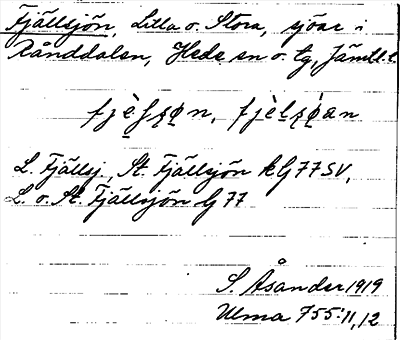 Fjällsjön, Lilla o. Stora, sjöar i
Rånddalen, Hede sn o. tg, Jämtl. l.
L. Fjällsj., St. Fjällsjön kG77SV,
L. o. St. Fjällsjön G77
S. Åsander 1919
Ulma 755:11, 12